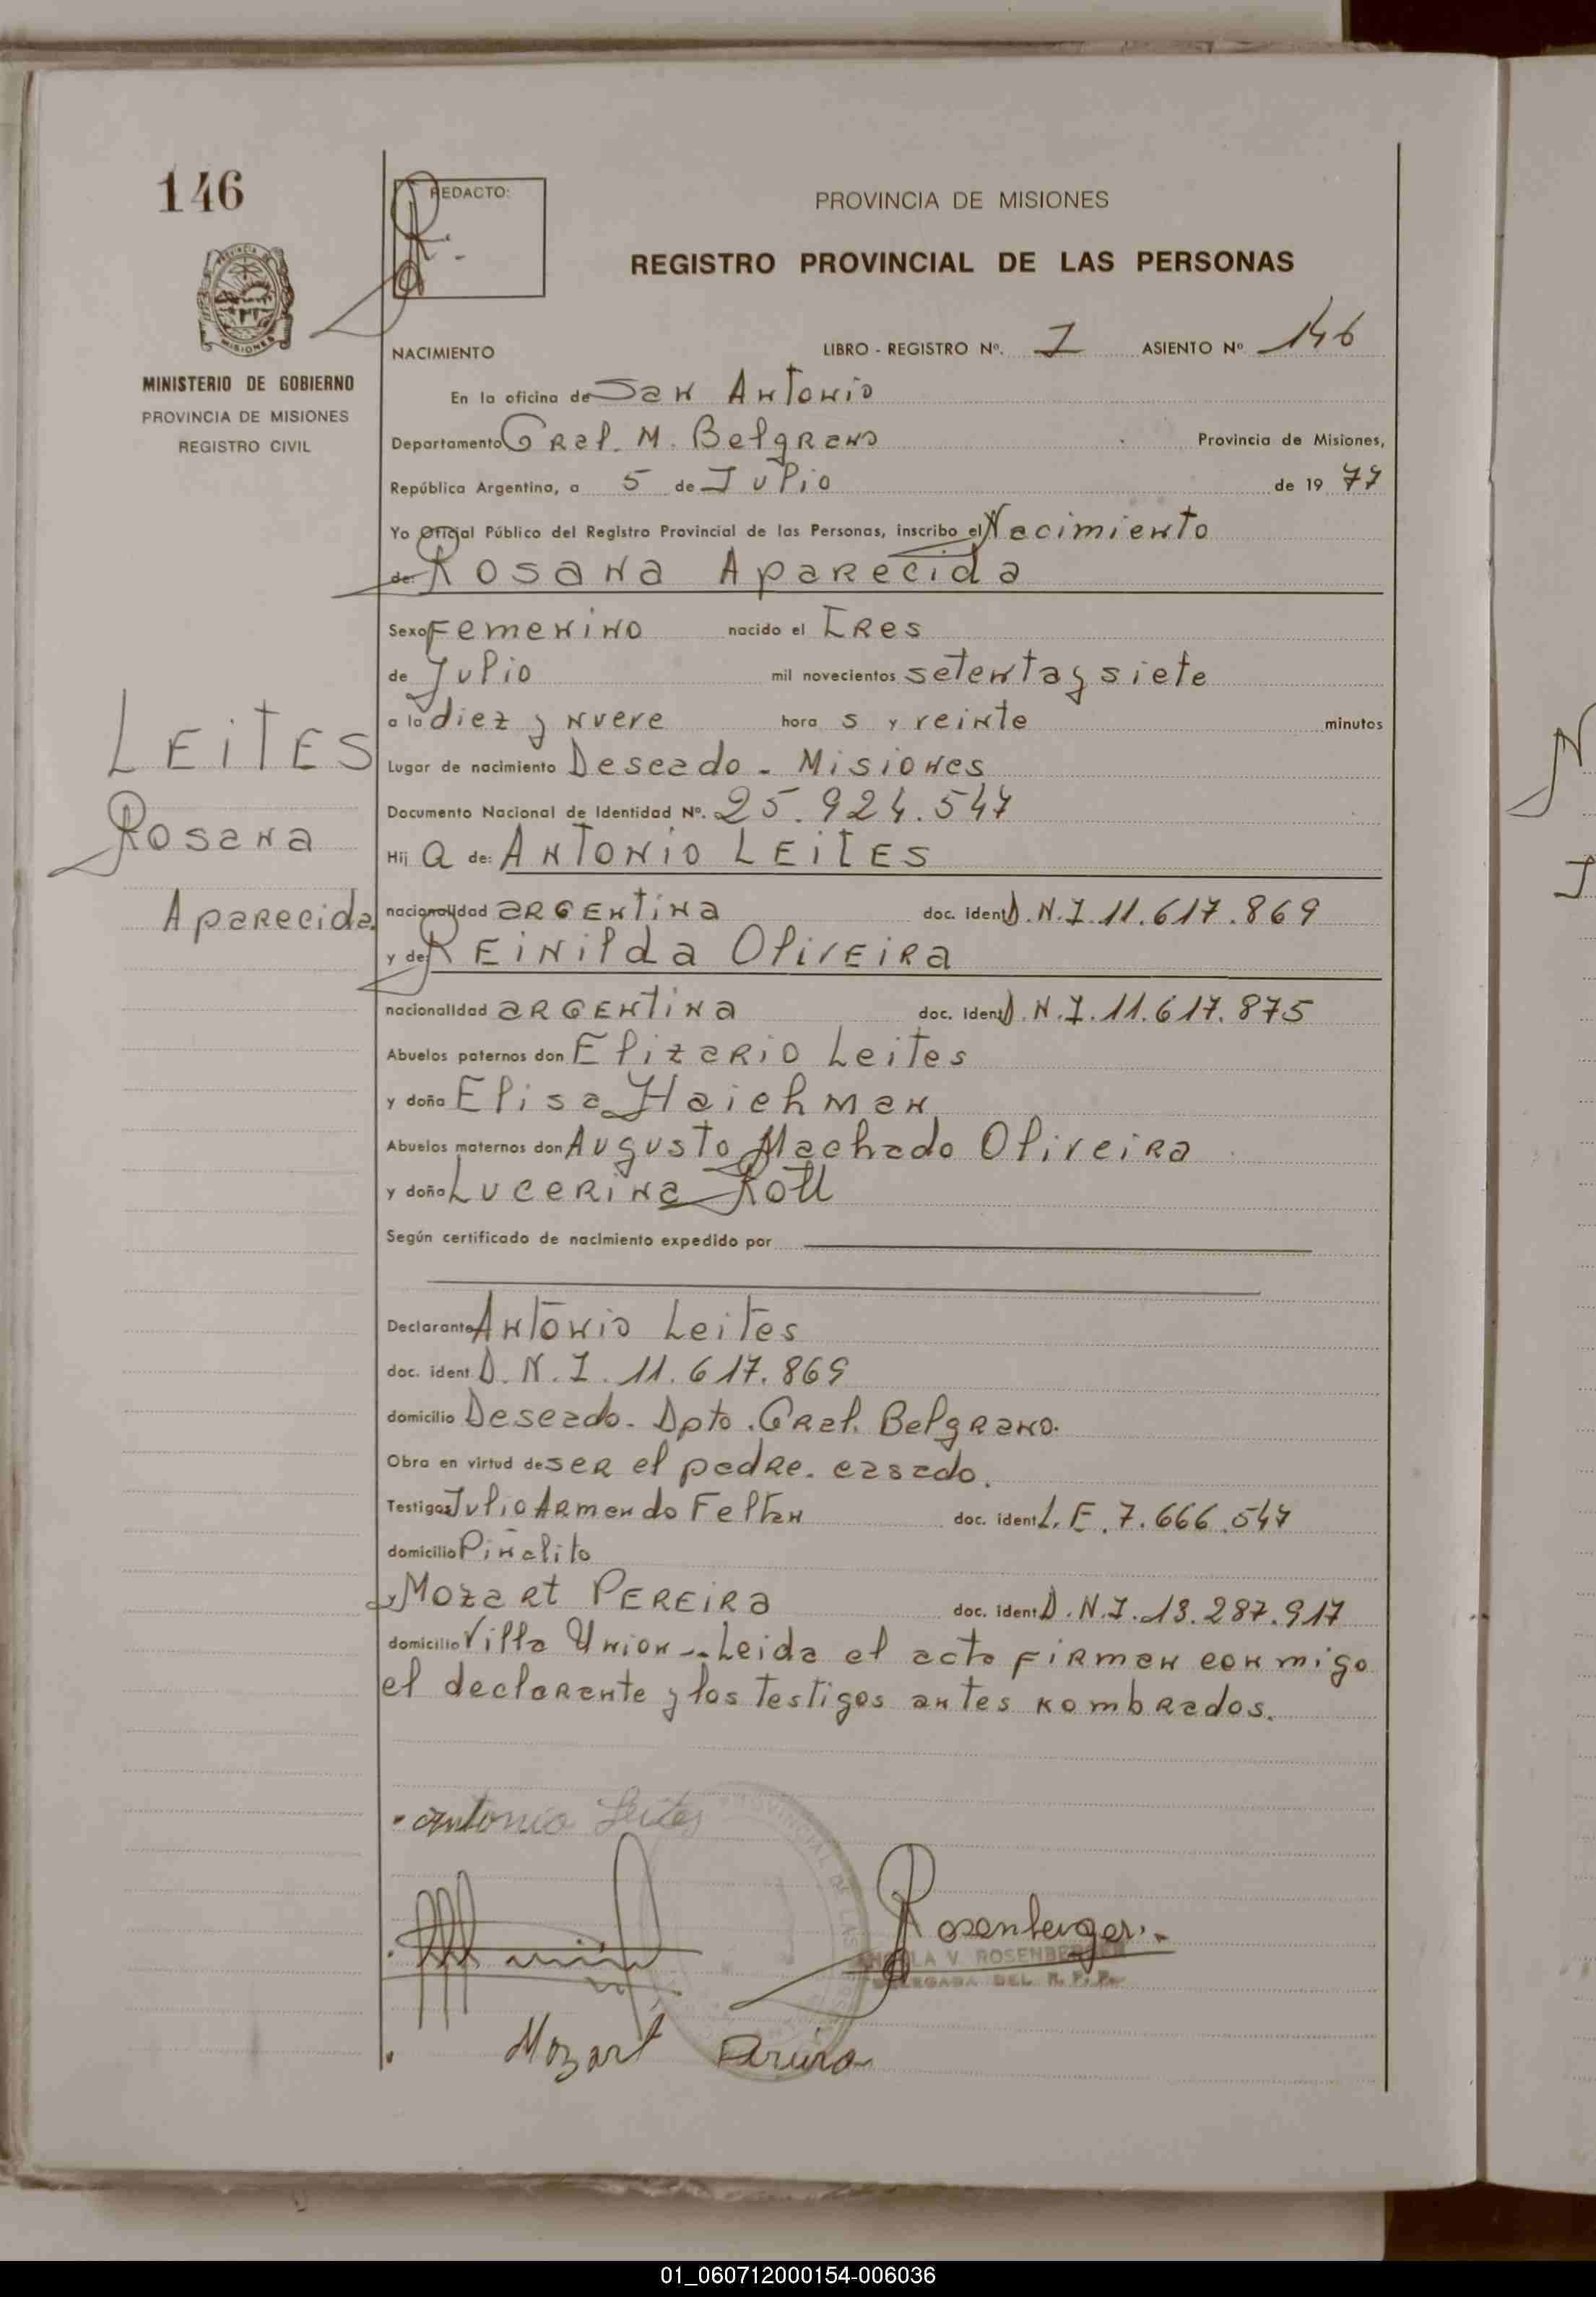 146
REDACTO:
PROVINCIA DE MISIONES
REGISTRO PROVINCIAL DE LAS PERSONAS
MISIONES
MINISTERIO DE GOBIERNO
PROVINCIA DE MISIONES
REGISTRO CIVIL
NACIMIENTO LIBRO - REGISTRO Nº. I ASIENTO Nº 146
En la oficina de San Antonio
Departamento Gral. M. Belgrano Provincia de Misiones,
República Argentina, a 5 de Julio de 19 77
Yo Oficial Público del Registro Provincial de las Personas, inscribo el Nacimiento
de: Rosana Aparecida
Sexo Femenino nacido el Tres
de Julio mil novecientos setenta y siete
a la diez y nueve hora s y veinte minutos
Lugar de nacimiento Deseado - Misiones
Documento Nacional de Identidad Nº. 25.924.547
Hij a de: ANTONIO LEITES
LEITES
Rosana
Aparecida.
nacionalidad ARGENTINA doc. ident D.N.I. 11.617.869
y de: REINILDA OLIVEIRA
nacionalidad ARGENTINA doc. ident D.N.I. 11.617.875
Abuelos paternos don Elizario Leites
y doña Elisa Haichman
Abuelos maternos don Augusto Machado Oliveira
y doña Lucerina Rott
Según certificado de nacimiento expedido por
Declarante Antonio Leites
doc. ident. D.N.I. 11.617.869
domicilio Deseado - Dpto. Gral. Belgrano.
Obra en virtud de ser el padre. casado.
Testigos Julio Armando Feltan doc. ident L.E. 7.666.547
domicilio Piñalito
y Mozart PEREIRA doc. ident D.N.I. 13.287.917
domicilio Villa Union -. Leida el acta firman conmigo
el declarante y los testigos antes nombrados.
Antonio Leites
Rosenberger
V. ROSENBERGER
DELEGADA DEL R. P. P.
Mozart
01_060712000154-006036